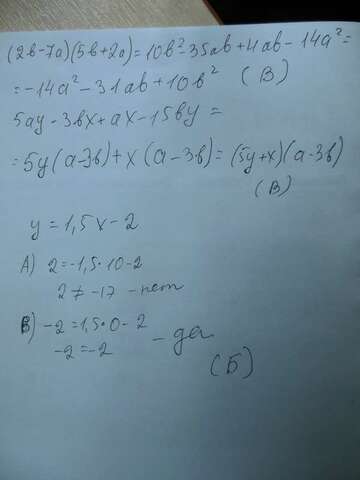 (2в-7a)(5в+2a)=10в²-35aв+4aв-14a²=
=-14a²-31aв+10в² (В)
5ay-3вx+ax-15вy=
=5y(a-3в)+x(a-3в)=(5y+x)(a-3в)
(В)
y=1,5x-2
А) 2=-1,5·10-2
2≠-17 - нет
Б) -2=1,5·0-2
-2=-2 - да
(Б)